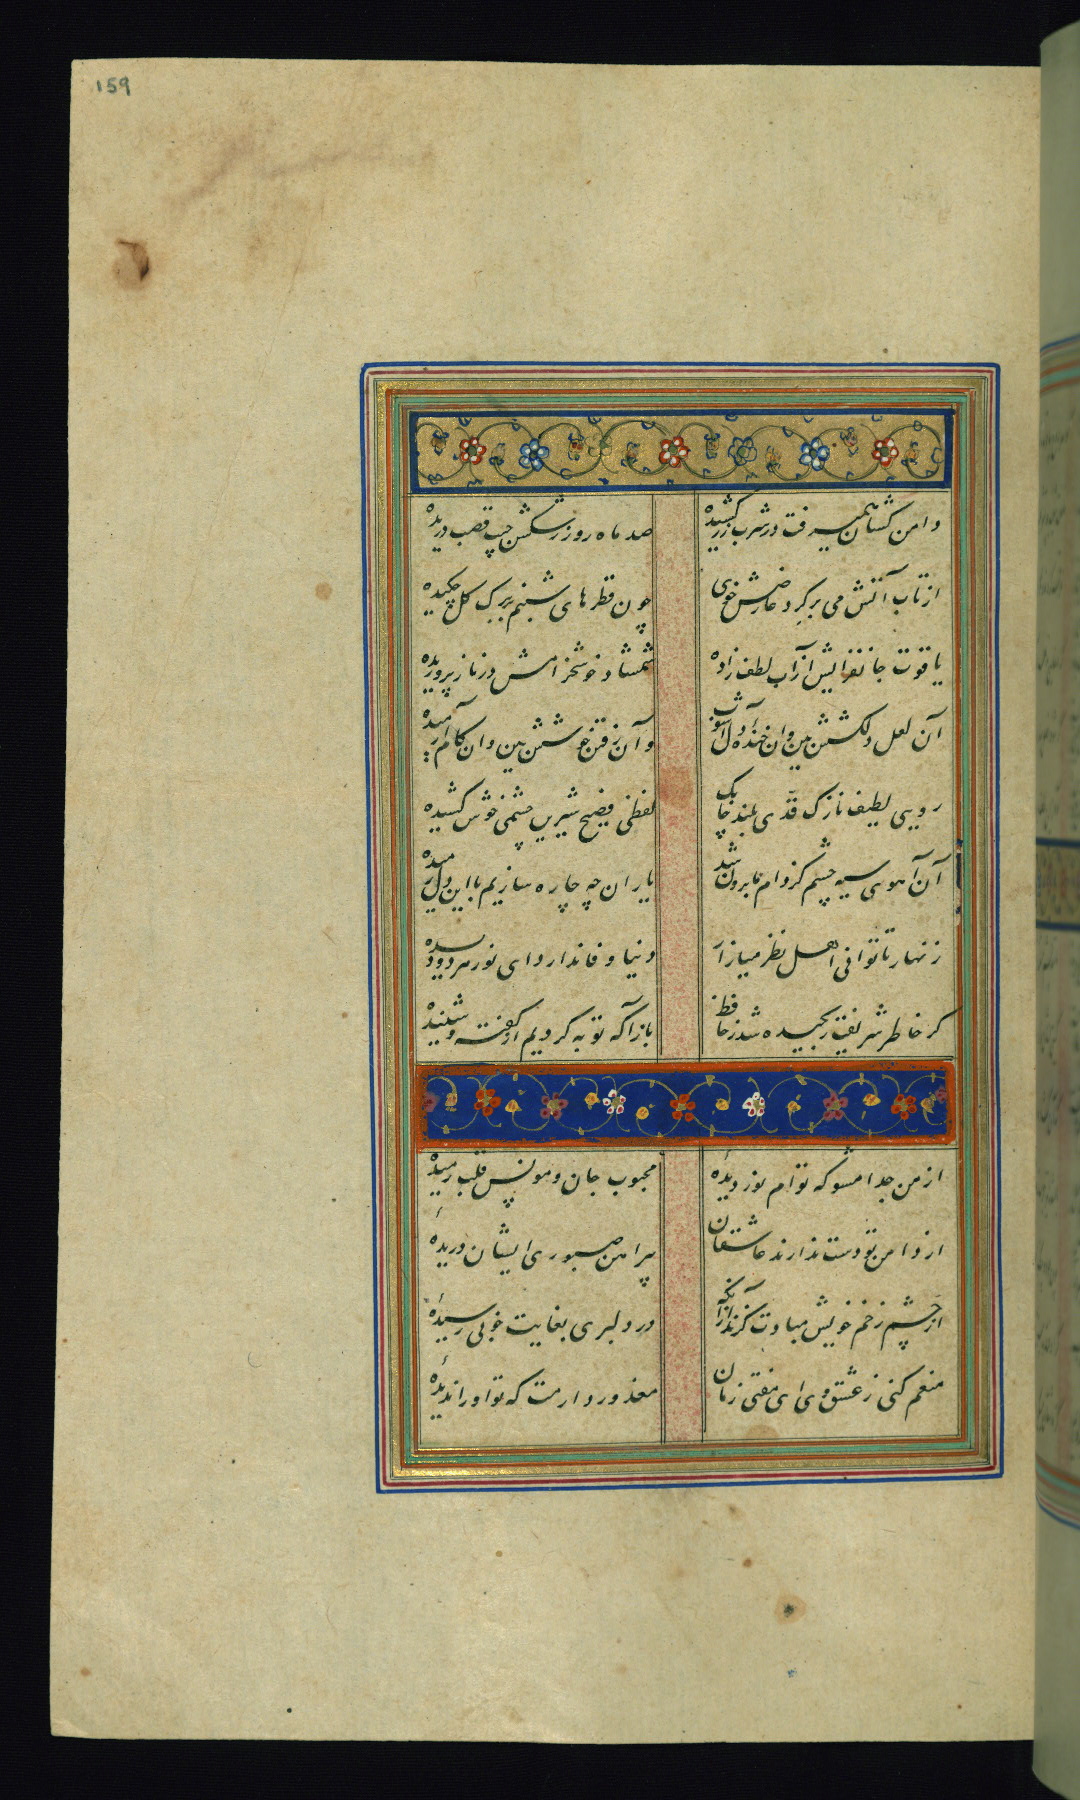 159
دامن کشان همیرفت در شرب زرکشیده
صد ماه رو ز رشکش جیب قصب دریده
از تاب آتش می بر گرد عارضش خوی
چون قطرهای شبنم بر برک کل چکیده
یاقوت جانفزایش از آب لطف زاده
شمشاد خوشخرامش در ناز پروریده
آن لعل دلکشش بین وان خنده دل آشوب
وآن رفتن خوشش بین وان کام آرمیده
رویی لطیف نازک قدّی بلند چابک
لفظی فصیح شیرین چشمی خوش کشیده
آن آهوی سیه چشم کز دام ما برون شد
یاران چه چاره سازیم با این دل رمیده
زنهار تا توانی اهل نظر میازار
دنیا وفا ندارد ای نور هر دو دیده
کر خاطر شریفت رنجیده شد ز حافظ
بازآ که توبه کردیم از کفته و شنیده
از من جدا مشو که توام نور دیدهٔ
محبوب جان و مونس قلب رمیدهٔ
از دامن تو دست ندارند عاشقان
پیراهن صبوری ایشان دریدهٔ
از چشم زخم خویش مبادت کزند از آنکه
در دلبری بغایت خوبی رسیدهٔ
منعم کنی ز عشق وی ای مفتی زمان
معذور دارمت که تو او را ندیدهٔ